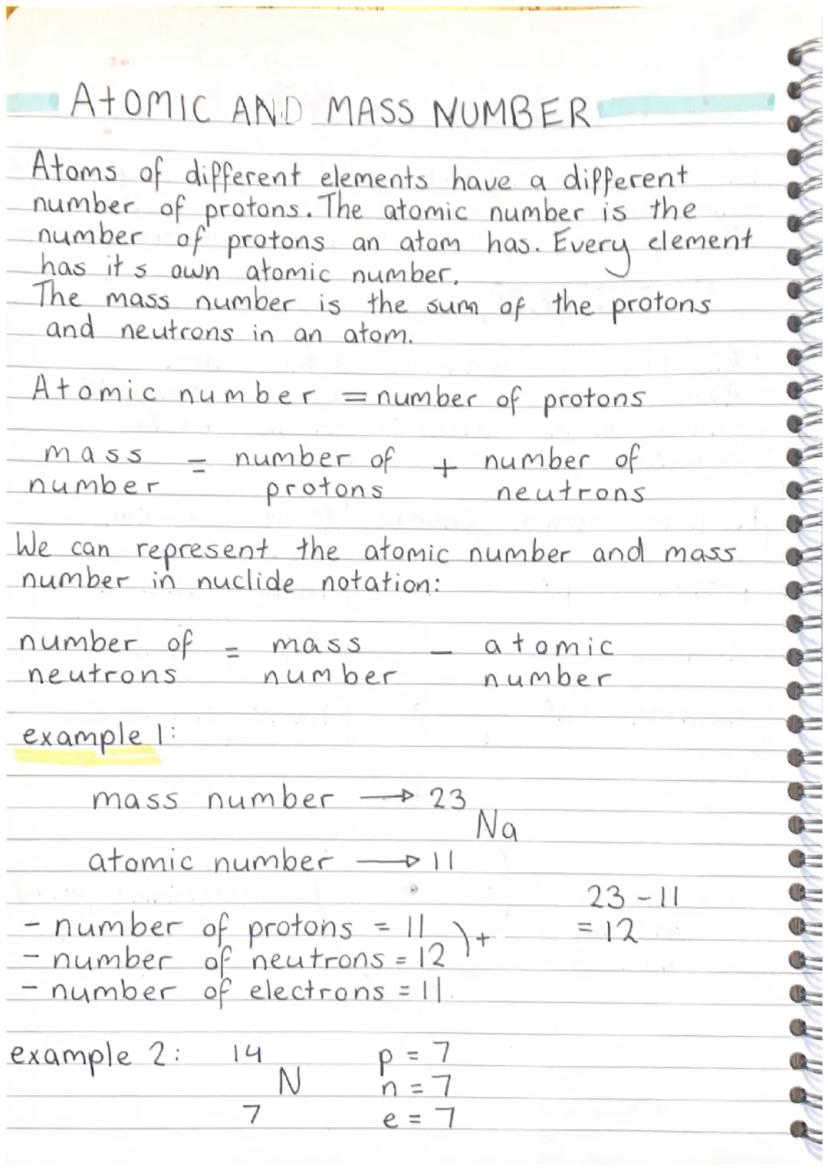 ATOMIC AND MASS NUMBER
Atoms of different elements have a different
number of protons. The atomic number is the
number of protons an atom has. Every element
has it s own atomic number.
The mass number is the sum of the protons
and neutrons in an atom.
Atomic number = number of protons
mass = number of + number of
number protons neutrons
We can represent the atomic number and mass
number in nuclide notation:
number of = mass - atomic
neutrons number number
example 1:
mass number → 23
Na
atomic number → 11
23 - 11
- number of protons = 11 ) + = 12
- number of neutrons = 12
- number of electrons = 11
example 2: 14 p = 7
N n = 7
7 e = 7